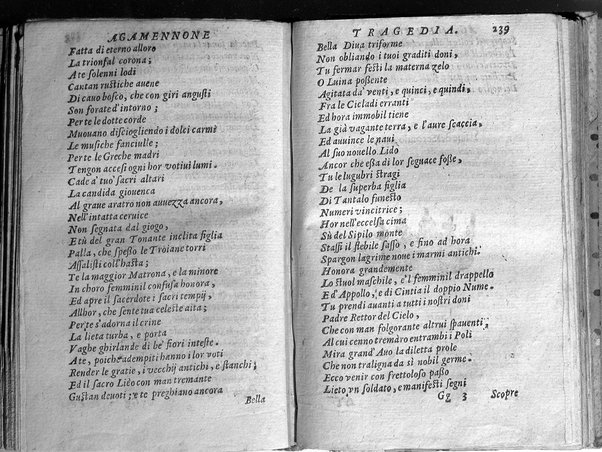 AGAMENNONE
Fatta di eterno alloro
La trionfal corona;
A te solenni lodi
Cantan rustiche auene
Di cauo bosco, che con giri angusti
Son forate d'intorno;
Per te le dotte corde
Muouano disciogliendo i dolci carmi
Le musiche fanciulle;
Per te le Greche madri
Tengon accesi ogni hor votiui lumi.
Cade a' tuo' sacri altari
La candida giouenca
Al graue aratro non auuezza ancora,
Nell'intatta ceruice
Non segnata dal giogo,
E tù del gran Tonante inclita figlia
Palla, che spesso le Troiane torri
Assalisti coll'hasta;
Te la maggior Matrona, e la minore
In choro femminil confusa honora,
Ed apre il sacerdote i sacri tempij,
Allhor, che sente tua celeste aita;
Per te s'adorna il crine
La lieta turba, e porta
Vaghe ghirlande di be' fiori inteste.
A te, poiche adempiti hanno i lor voti
Render le gratie, i vecchij antichi, e stanchi;
Ed il sacro Lideo con man tremante
Gustan deuoti; e te preghiano ancora
Bella
TRAGEDIA. 239
Bella Diua triforme
Non obliando i tuoi graditi doni,
Tu fermar festi la materna zelo
O Luina possente
Agitata da' venti, e quinci, e quindi,
Fra le Cicladi erranti
Ed hora immobil tiene
La già vagante terra, e l'aure scaccia,
Ed auuince le naui
Al suo nouello Lido
Ancor che essa di lor seguace fosse,
Tu le lugubri stragi
De la superba figlia
Di Tantalo funesto
Numeri vincitrice;
Hor nell'eccelsa cima
Sù del Sipilo monte
Stassi il flebile sasso, e fino ad hora
Spargon lagrime noue i marmi antichi.
Honora grandemente
Lo stuol maschile, e'l femminil drappello
E d'Appollo, e di Cintia il doppio Nume.
Tu prendi auanti a tutti i nostri doni
Padre Rettor del Cielo,
Che con man folgorante altrui spauenti,
Al cui cenno tremaro entrambi i Poli
Mira grand'Auo la diletta prole
Che non traligna da sì nobil germe.
Ecco venir con frettoloso passo
Lieto vn soldato, e manifesti segni
Gg 3 Scopre